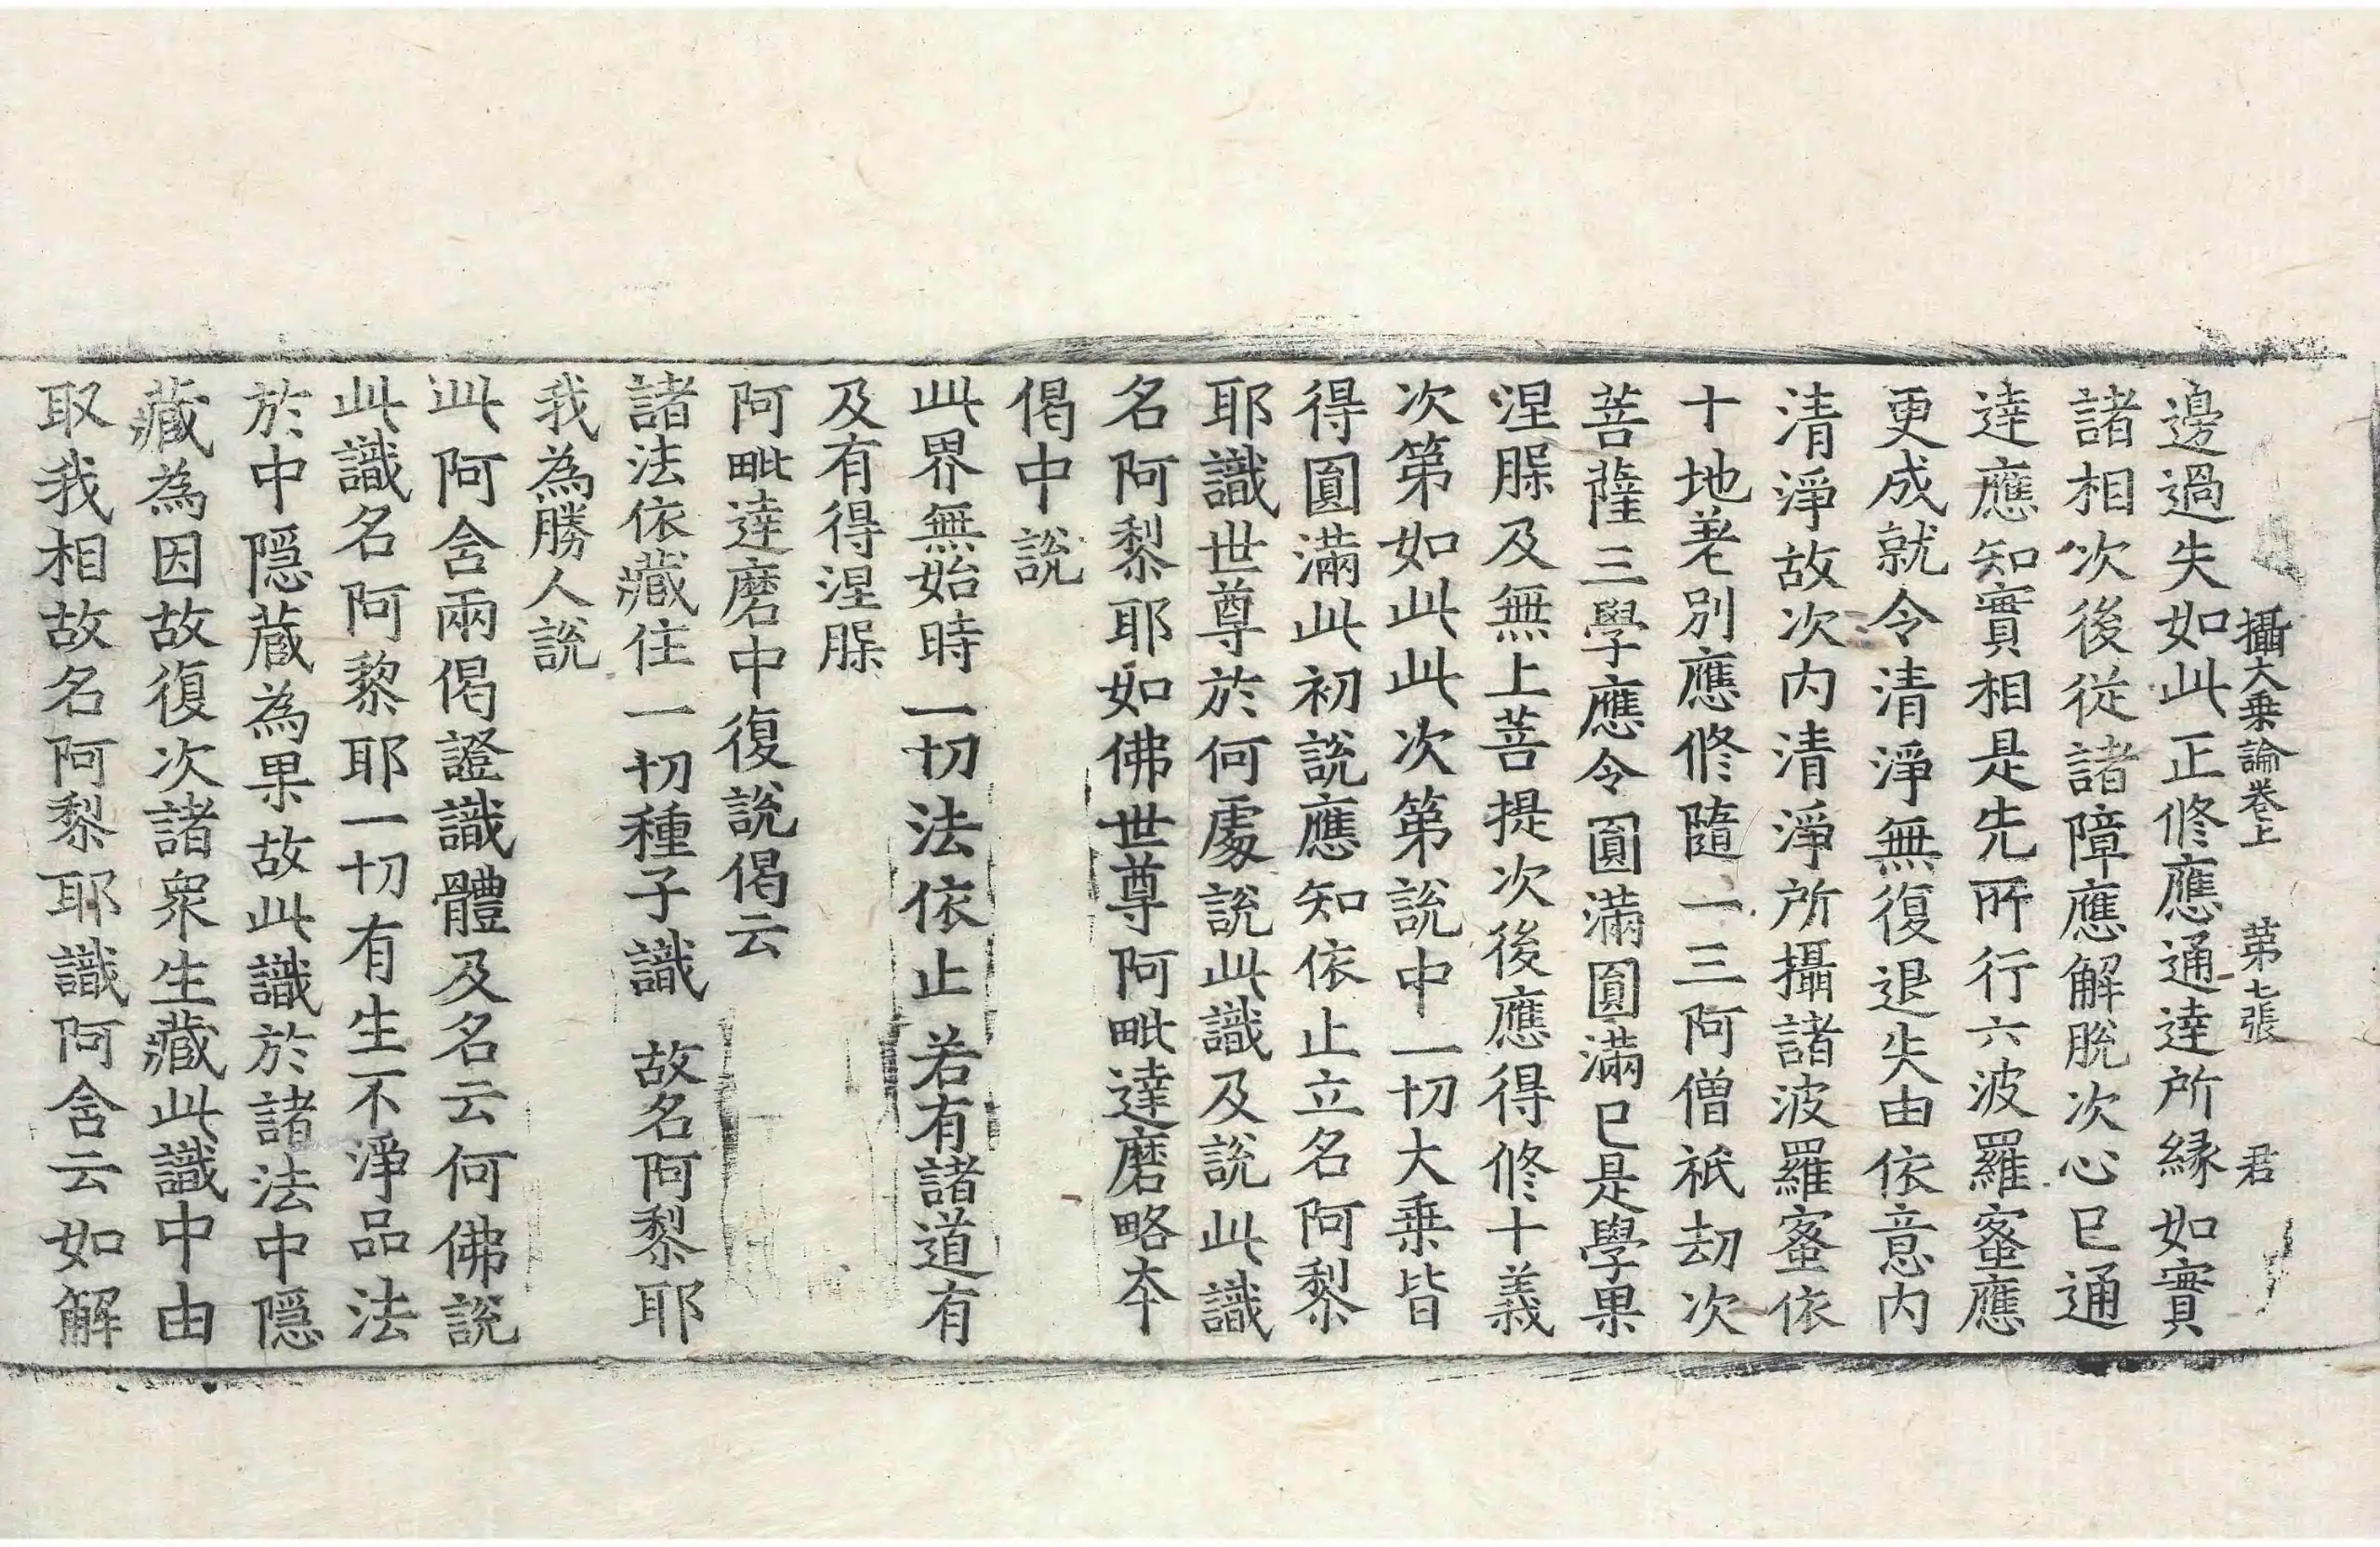 攝大乗論卷上 第七張 君
邊過失如此正修應通達所縁如實
諸相次後從諸障應解脫次心已通
達應知實相是先所行六波羅蜜應
更成就令清淨無復退失由依意内
清淨故次内清淨所攝諸波羅蜜依
十地差別應修隨一三阿僧祇劫次
菩薩三學應令圓滿圓滿已是學果
涅槃及無上菩提次後應得修十義
次第如此此次第說中一切大乗皆
得圓滿此初說應知依止立名阿黎
耶識世尊於何處說此識及說此識
名阿黎耶如佛世尊阿毗達磨略本
偈中說
此界無始時一切法依止 若有諸道有
及有得涅槃
阿毗達磨中復說偈云
諸法依藏住一切種子識 故名阿黎耶
我為勝人說
此阿含兩偈證識體及名云何佛說
此識名阿黎耶一切有生不淨品法
於中隱藏為果故此識於諸法中隱
藏為因故復次諸衆生藏此識中由
取我相故名阿黎耶識阿含云如解